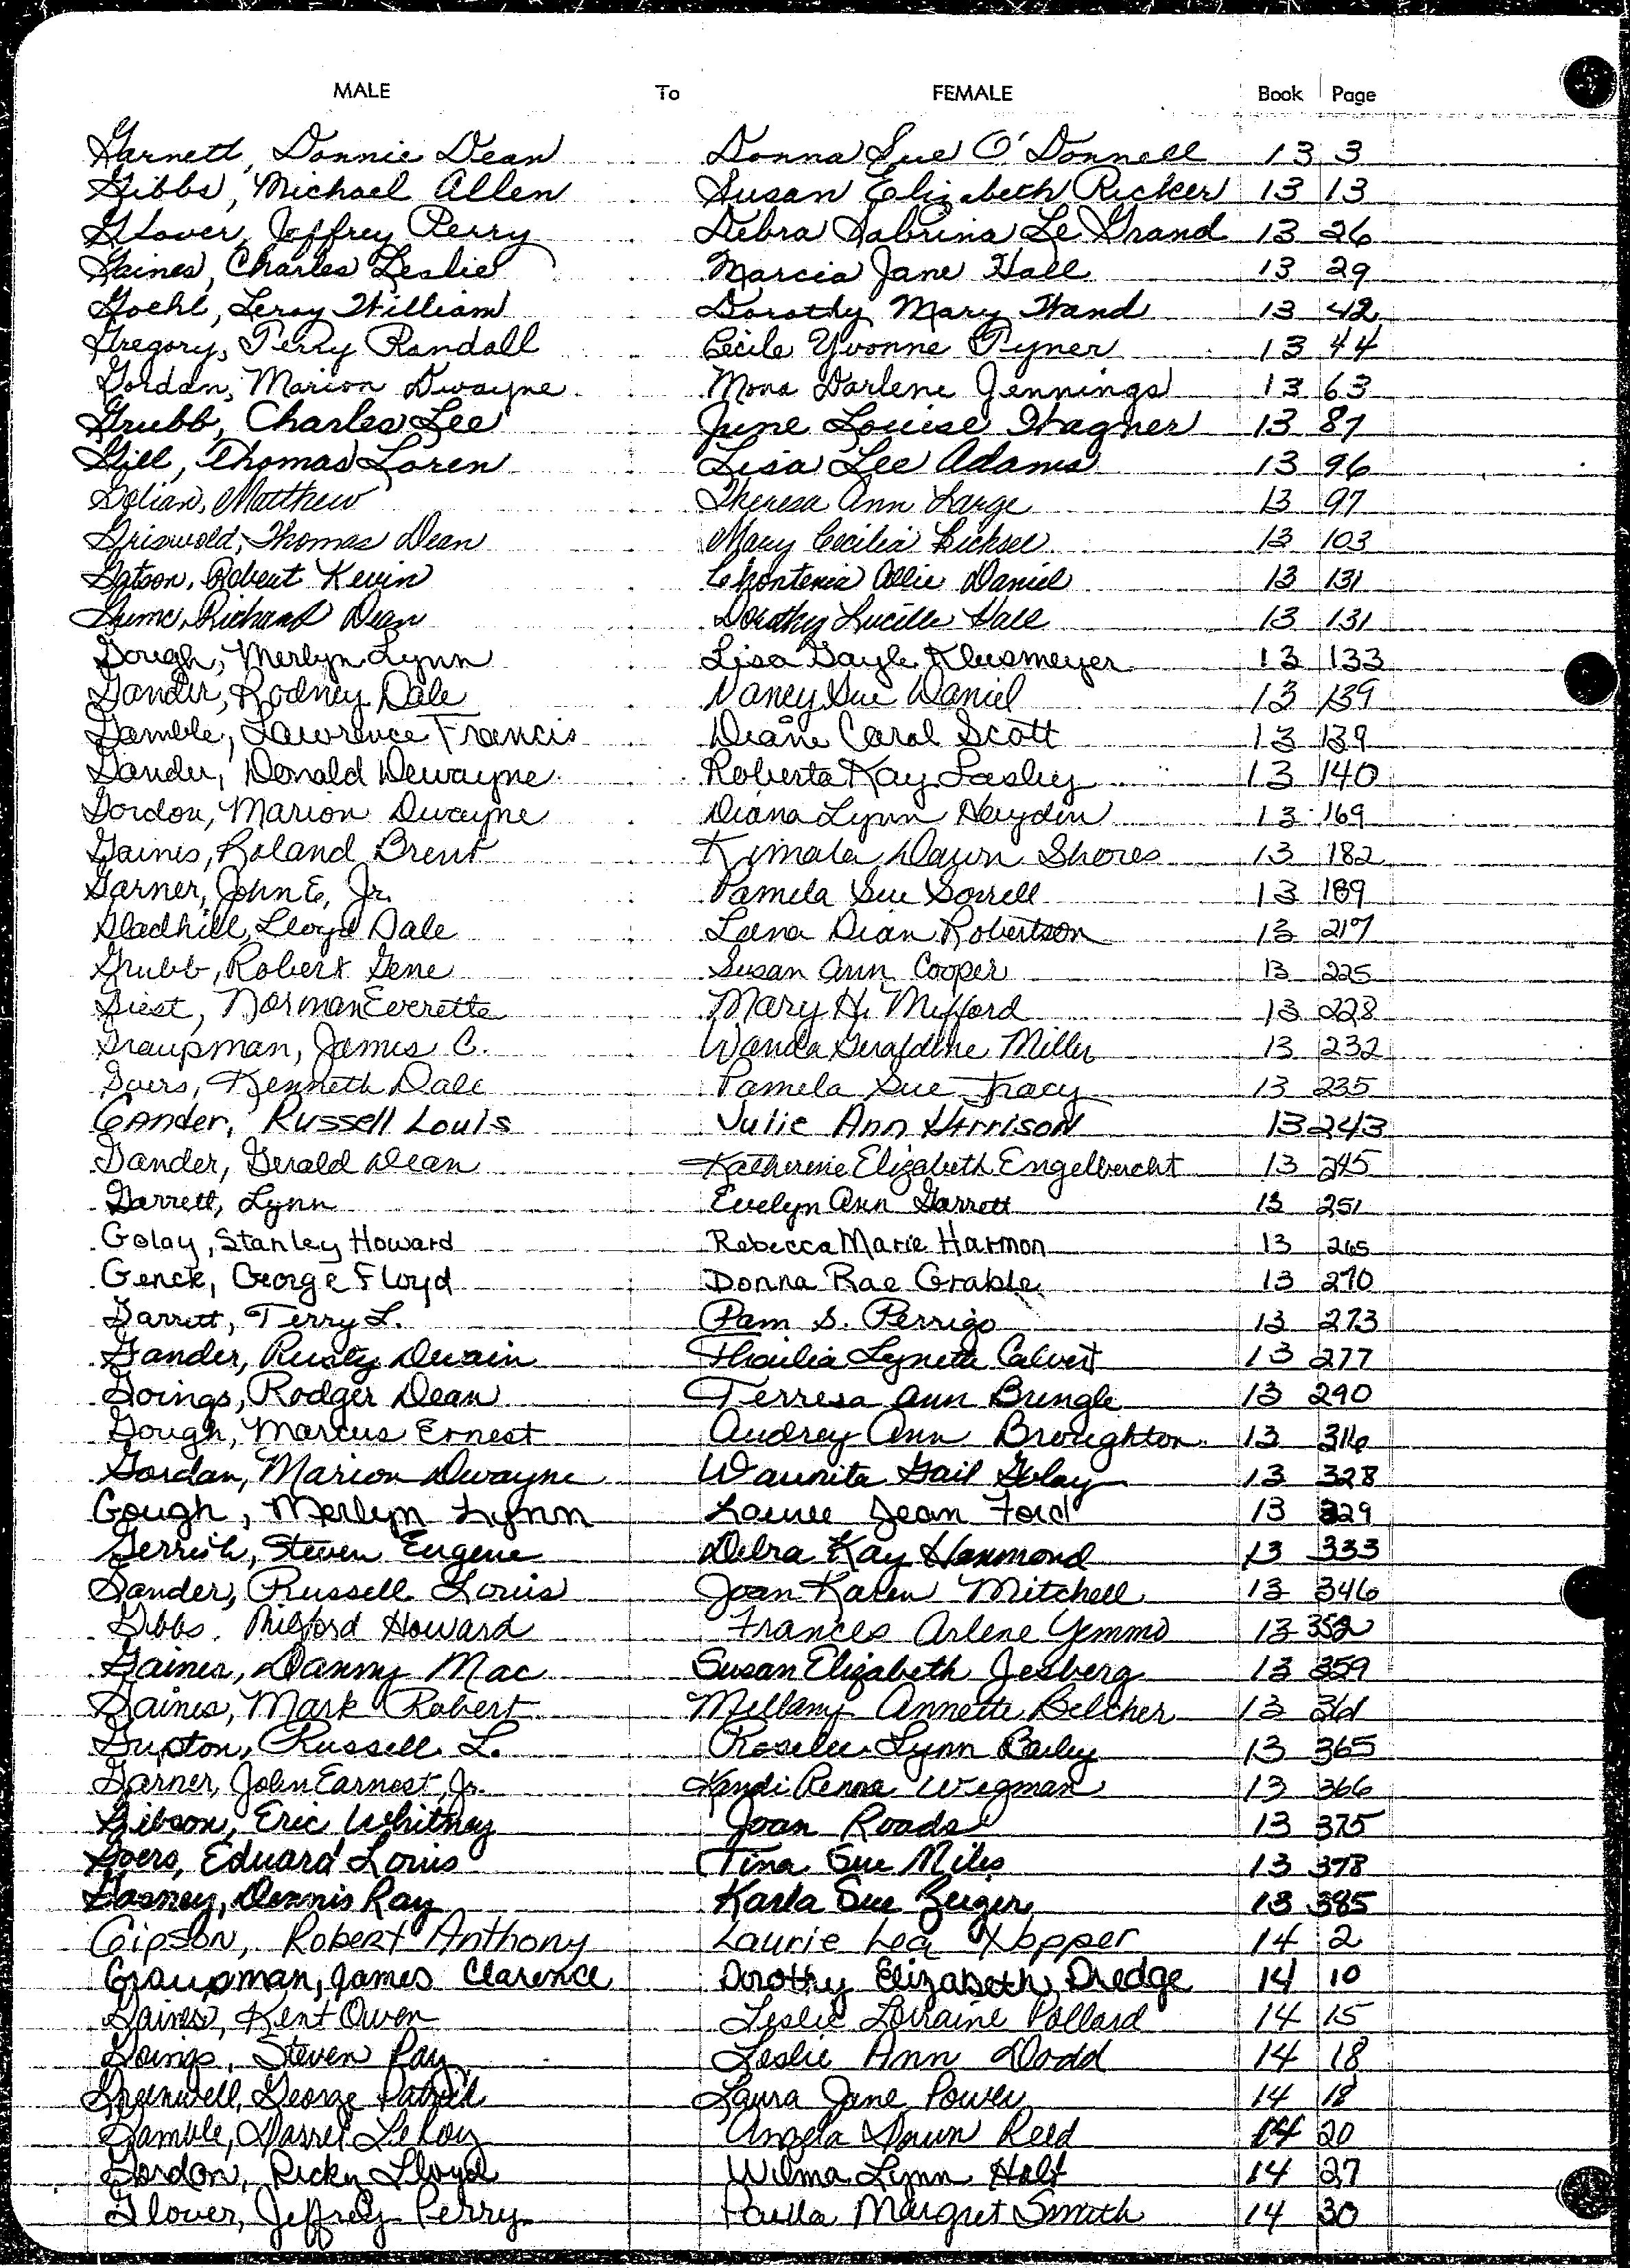 MALE To FEMALE Book Page
Garnett, Donnie Dean Donna Sue O'Donnell 13 3
Gibbs, Michael Allen Susan Elizabeth Ricker 13 13
Glover, Jeffrey Perry Debra Sabrina Le Grand 13 26
Gaines, Charles Leslie Marcia Jane Hall 13 29
Goehl, Leroy William Dorothy Mary Hand 13 42
Gregory, Terry Randall Cecile Yvonne Tyner 13 44
Gordan, Marion Dwayne Mona Darlene Jennings 13 63
Grubb, Charles Lee June Louise Wagner 13 87
Gill, Thomas Loren Lisa Lee Adams 13 96
Golian, Matthew Theresa Ann Large 13 97
Griswold, Thomas Dean Mary Cecilia 13 103
Gatson, Robert Kevin Allie Daniel 13 131
Richard Dean Dorothy Lucille Hall 13 131
Gough, Merlyn Lynn Lisa Gayle Klusmeyer 13 133
Gander, Rodney Dale Nancy Sue Daniel 13 139
Gamble, Lawrence Francis Diane Carol Scott 13 139
Gander, Donald Dewayne Roberta Kay Lasley 13 140
Gordon, Marion Dwayne Diana Lynn Hayden 13 169
Gaines, Roland Brent Kimala Dawn Shores 13 182
Garner, John E, Jr. Pamela Sue Sorrell 13 189
Gladhill, Lloyd Dale Lena Dian Robertson 13 217
Grubb, Robert Gene Susan Ann Cooper 13 225
Giest, Norman Everette Mary H. Mefford 13 228
Graupman, James C. Wanda Geraldine Miller 13 232
Goers, Kenneth Dale Pamela Sue Tracy 13 235
Gander, Russell Louis Julie Ann Harrison 13 243
Gander, Gerald Dean Katherine Elizabeth Engelbrecht 13 245
Garrett, Lynn Evelyn Ann Garrett 13 251
Golay, Stanley Howard Rebecca Marie Harmon 13 265
Genck, George Floyd Donna Rae Grable 13 270
Garrett, Terry L. Pam S. Perrigo 13 273
Gander, Rusty Dwain Thailia Lynette Calvert 13 277
Goings, Rodger Dean Terresa Ann Bringle 13 290
Gough, Marcus Ernest Audrey Ann Broughton 13 316
Gordan, Marion Dwayne Waunita Gail Golay 13 328
Gough, Merlyn Lynn Laurie Jean Ford 13 329
Gerrish, Steven Eugene Debra Kay Hammond 13 333
Gander, Russell Louis Joan Karen Mitchell 13 346
Gibbs, Philford Howard Frances Arlene Yemmo 13 352
Gaines, Danny Mac Susan Elizabeth Jesberg 13 359
Gaines, Mark Robert Mellany Annette Belcher 13 361
Gupton, Russell L. Roselee Lynn Bailey 13 365
Garner, John Earnest, Jr. Kandi Renae Wegman 13 366
Gibson, Eric Whitney Joan Roads 13 375
Goers, Eduard Louis Tina Sue Miles 13 378
Gosney, Dennis Ray Karla Sue Zeiger 13 385
Gipson, Robert Anthony Laurie Lea Hopper 14 2
Graupman, James Clarence Dorothy Elizabeth Dredge 14 10
Gaines, Kent Owen Leslie Lorraine Pollard 14 15
Goings, Steven Ray Leslie Ann Dodd 14 18
Greenwell, George Patrick Laura Jane Power 14 18
Gamble, Darrel LeRoy Angela Dawn Reed 14 20
Gordon, Ricky Lloyd Wilma Lynn Holt 14 27
Glover, Jeffrey Perry Paula Margret Smith 14 30